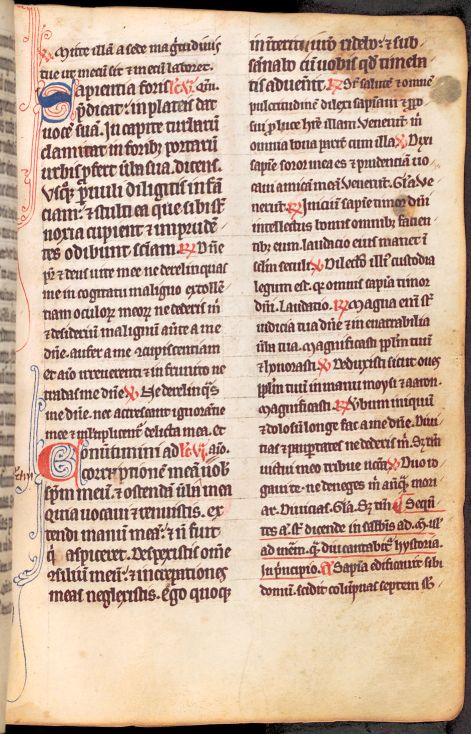 Mitte illā a sede magnitudinis
tue ut mecū sit & mecū laboret.
Sapientia foris lc. vi.
p̄dicat. in plateis dat
uocē suā. In capite turbarū
clamitat in forib; portarū
urbis p̄fert ūba sua. dicens.
Usq; q̄ ꝑuuli diligitis infā
ciam. & stulti ea que sibi sꝭ
noxia cupient & imprudē
tes odibunt sc̄iam. ℟ Dn̄e
pr̄ & deus uite mee ne derelinquas
me in cogitatu maligno extollē
tiam oculoꝝ meoꝝ ne dederis m̄
& desideriū malignū aūte a me
dn̄e. aufer a me 9cupiscentiam
et aīo irreuerenti & infrunito ne
tradas me dn̄e ℣ Ne derelinq̄s
me dn̄e. nec accrescant ignorātie
mee & multiplicent̄ delicta mea. et
Conuertimini ad lc. vi.
correptionē meā. en
ꝓferā uobis
spm̄ meū. & ostendā ūba mea
Quia uocaui & renuistis. ex
tendi manū meā. & ñ fuit
q̇ aspiceret. Despexistis om̄e
9siliū meū. & increpationes
meas neglexistis. Ego quoq;
in int̄eritu ur̄o ridebo. & sub
sanabo cū uobis qd̄ timeba
tis aduen̄it. ℟ Sr̄ salutē & om̄nē
pulcritudinē dilexi sapiam & ꝓpo
sui ꝑ luce hr̄e illam. Venerūt m̄
omnia bona parit̄ cum illa ℣ Dixi
sapie soror mea es & prudenciā uo
caui amicā meā. Venerūt. Gl̄a Ve
nerūt. ℟ Iniciū sapie timor dn̄i
intellectus bonus omnib; facien
tib; eum. laudacio eius manet ī
sc̄lm seculi ℣ Dilectō illī custodia
legum est. q̄ omnis sapia timor
dn̄i. Laudatio. ℟ Magna enī sꝭ
iudicia tua dn̄e & inenarrabilia
ūba tua. magnificasti pplm̄ tuū
& honorasti ℣ Deduxisti sicut oues
pplm̄ tuū in manu moysi & aaron.
Magnificasti. ℟ Verbum iniquū
& dolosū longe fac a me dn̄e. Diui
tias & paup̄tates ne dederis m̄. Sꝫ tm̄
uictui meo tribue nccīa ℣ Duo ro
gaui te. ne deneges m̄ añq̄ mori
ar. Diuicias. Gl̄a. Sꝫ tm̄ Seqn̄
tes
dicende in sabb̄is ad
ad
cantabit̄ hystoria.
In principio. Sapia edificauit sibi
domū. scidit colūpnas septem